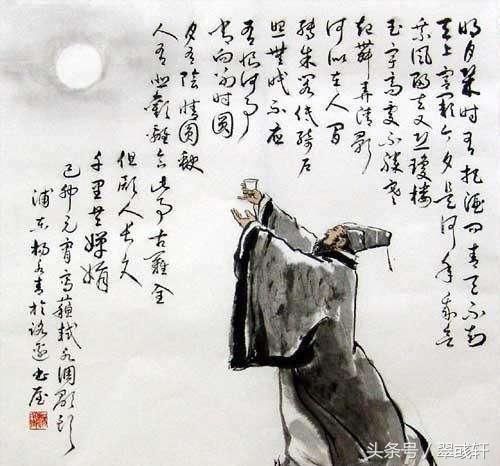 明月幾时有把酒问青天不知
天上宫阙今夕是何年我欲
乘风归去又恐瓊楼
玉宇高处不胜寒
起舞弄清影
何似在人间
转朱阁低绮户
照無眠不应
有恨何事
长向别时圆
月有陰晴圆缺
人有悲歡離合此事古難全
但願人长久
千里共嬋娟
己卯元宵寫蘇軾水调歌头
浦东杨永青於
头条号 / 翠彧轩